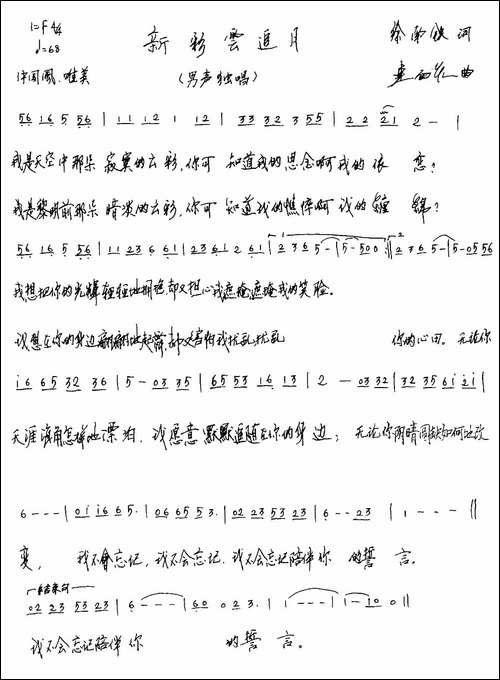 1=F 4/4
♩=68
新彩雲追月
徐 词
中国風、唯美
(男声独唱)
曲
56 16 5 56 | 11 12 1 12 | 33 32 3 55 | 22 21 2 - |
我是天空中那朵 寂寞的云彩,你可 知道我的思念啊我的依 恋?
我是黎明前那朵 暗淡的云彩,你可 知道我的憔悴啊 我的纏 錦?
56 16 5 56 | 11 23 6 61 | 23 61 2 61 | 2 36 5- | 5-500 :|| 2 36 5- | 5-05 56
我想把你的光輝轻轻地拥抱,却又担心我遮掩遮掩我的笑脸。
我想在你的身边翩翩地起舞,却又害怕我扰乱扰乱 你的心田。无论你
i6 65 32 36 | 5-03 35 | 65 53 16 13 | 2 - 03 32 | 32 35 6i 2i |
天涯海角怎样地漂泊,我愿意默默追随在你的身边;无论你阴晴圆缺如何地改
6--- | 0i i6 6 5. | 06 65 5 3. | 02 23 53 23 | 6--23 | 1--- ||
变, 我不會忘记,我不会忘记,我不会忘记陪伴你 的誓 言。
结束句
02 23 53 23 | 6--- | 60 0 2 3. | 1--- | 1-10 0 ||
我不会忘记陪伴你 的誓 言。